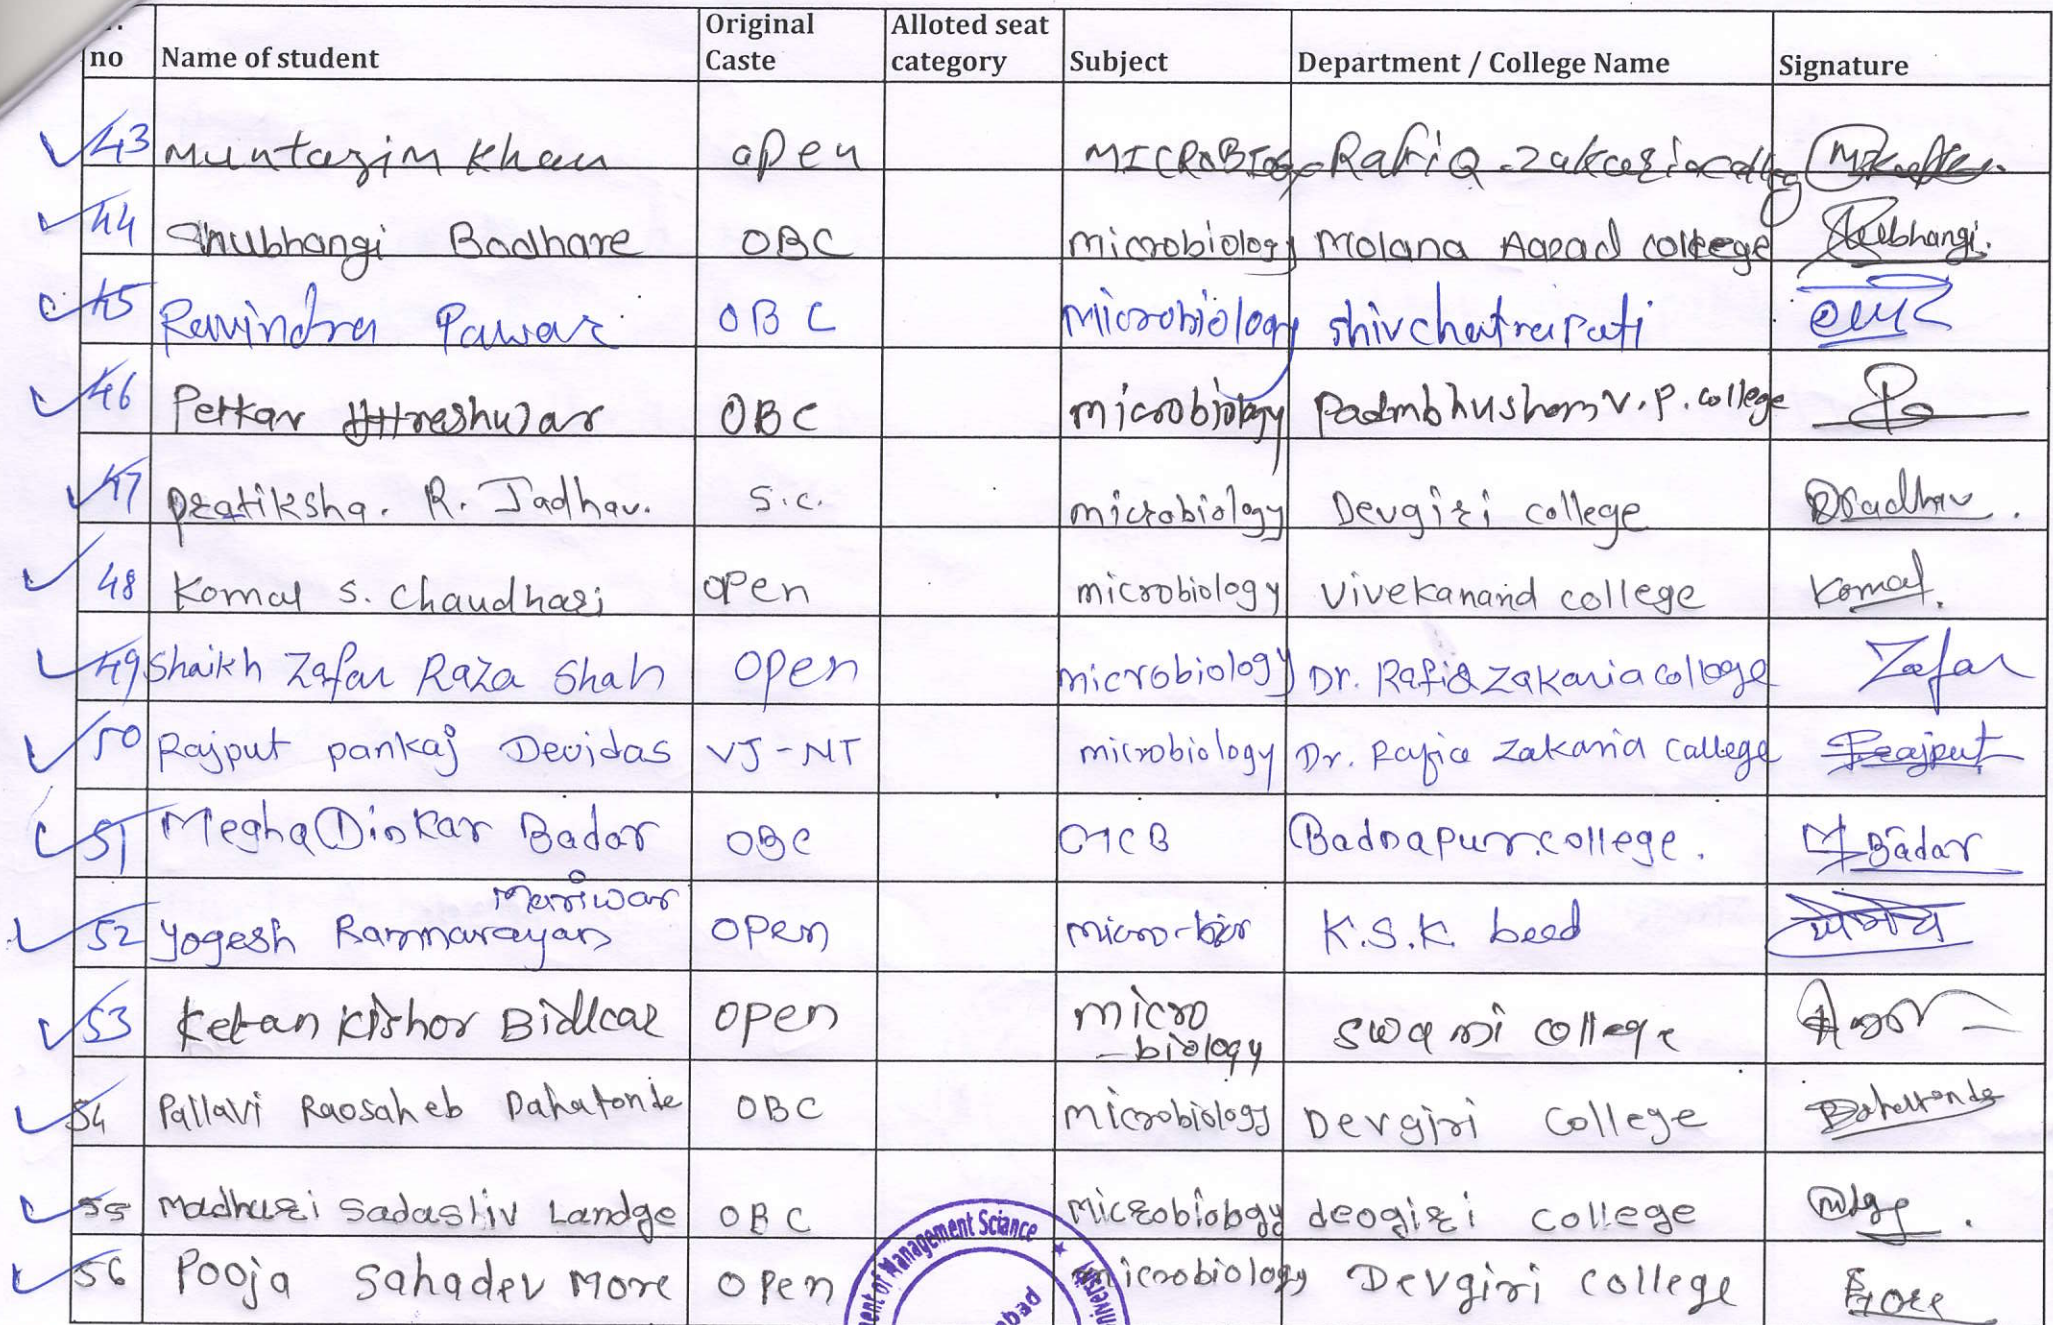 no Name of student Original Caste Alloted seat category Subject Department / College Name Signature
43 Muntazim Khan open MICROBIO Rafiq zakaria
44 Shubhangi Badhare OBC microbiology Molana Aazad college Shubhangi.
45 Ravindra Pawar OBC microbiology shivchatrapati
46 Petkar OBC microbiology Padmbhushan V.P. college
47 Pratiksha. R. Jadhav. S.C. microbiology Devgiri college Jadhav.
48 Komal S. Chaudhari open microbiology Vivekanand college Komal.
49 Shaikh Zafar Raza Shah open microbiology Dr. Rafiq Zakaria college Zafar
50 Rajput pankaj Devidas VJ-NT microbiology Dr. Rafiq Zakaria Callege Rajput
51 Megha Dinkar Badar OBC MCB Badnapur.college. M Badar
52 Yogesh Ramnarayan Maniwar open micro-bio K.S.K. beed
53 Ketan Kishor Bidkar open micro
-biology swami college
54 Pallavi Raosaheb Dahatonde OBC microbiology Devgiri College Dahatonde
55 Madhuri Sadashiv Landge OBC microbiology deogiri college
56 Pooja Sahadev More open microbiology Devgiri college More
ent of Management Sciance ★ Universi
bad